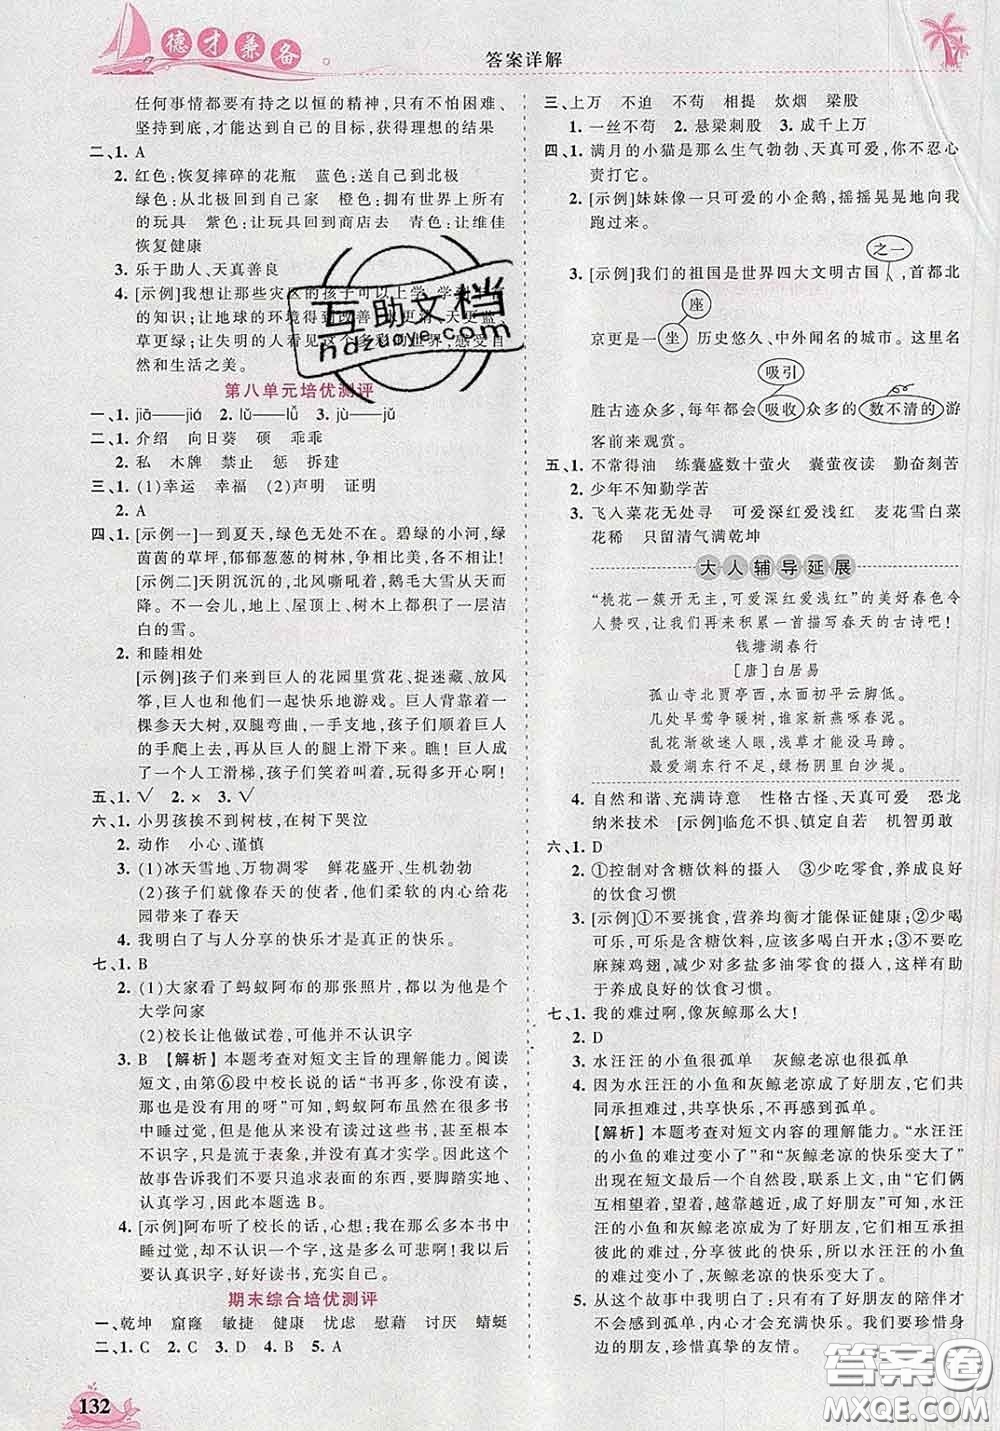 德才兼备
答案详解
任何事情都要有持之以恒的精神,只有不怕困难、
坚持到底,才能达到自己的目标,获得理想的结果
二、1. A
2. 红色:恢复摔碎的花瓶 蓝色:送自己到北极
绿色:从北极回到自己家 橙色:拥有世界上所有
的玩具 紫色:让玩具回到商店去 青色:让维佳
恢复健康
3. 乐于助人、天真善良
4. [示例]我想让那些灾区的孩子可以上学,学到更多
的知识;让地球的环境得到改善,水更清,天更蓝,
草更绿;让失明的人看见这个多彩的世界,感受自
然和生活之美。
第八单元培优测评
一、1. jiā——jiá 2. lǔ——lǚ 3. jù——jǔ
二、1. 介绍 向日葵 硕 乖乖
2. 私 木牌 禁止 惩 拆建
三、1. (1)幸运 幸福 (2)声明 证明
2. A
四、1. [示例一]一到夏天,绿色无处不在。碧绿的小河,绿
茵茵的草坪,郁郁葱葱的树林,争相比美,美不胜收。
[示例二]天阴沉沉的,北风嘶吼着,鹅毛大雪从天而
降。不一会儿,地上、屋顶上、树木上都积了一层洁
白的雪。
2. 和睦相处
[示例]孩子们来到巨人的花园里赏花、捉迷藏、放风
筝,巨人和孩子们一起快乐地游戏。巨人背靠着一
棵参天大树,双腿弯曲,一手支地,孩子们顺着巨人
的手爬上去,再从巨人的腿上滑下来。瞧!巨人成了
一个人工滑梯,孩子们笑着叫着,玩得多开心啊!
五、1. √ 2. × 3. √
六、1. 小男孩挨不到树枝,在树下哭泣
2. 动作 小心、谨慎
3. (1)冰天雪地、万物凋零 鲜花盛开、生机勃勃
(2)孩子们就像春天的使者,他们柔软的内心给花
园带来了春天
4. 我明白了与人分享的快乐才是真正的快乐。
七、1. B
2. (1)大家看了蚂蚁阿布的那张照片,都以为他是个
大学问家
(2)校长让他做试卷,可他并不认识字
3. B 【解析】本题考查对短文主旨的理解能力。阅读
短文,由第⑥段中校长说的话“书再多,没有用心读,
那也是没有用的呀”可知,蚂蚁阿布虽然在很多书
中睡过觉,但他并没有认真读过这些书,甚至根本
不识字,只是流于表象,并没有真才实学。因此这个
故事告诉我们不要只追求表面的东西,要脚踏实地、
认真学习,因此本题选B。
4. [示例]阿布听了校长的话,心想:我在那么多本书中
睡过觉,却不认识一个字,真是太惭愧了!我以后
要认真识字,好好读书,充实自己。
期末综合培优测评
一、乾坤 窟窿 敏捷 健康 忧虑 慰藉 讨厌 蜻蜓
二、1. C 2. C 3. D 4. B 5. A
132
三、上万 不迫 不苟 相提 炊烟 梁股
1. 一丝不苟 2. 悬梁刺股 3. 成千上万
四、1. 满月的小猫是那么生气勃勃、天真可爱,你不忍心
责打它。
2. [示例]妹妹像一只可爱的小企鹅,摇摇晃晃地向我
跑过来。
之一
3. [示例]我们的祖国是世界四大文明古国,首都北
座
京更是一坐历史悠久、中外闻名的城市。世界名
吸引
胜古迹众多,每年都会吸收众多的数不清的游
客前来观赏。
五、1. 不常得油 练囊盛数十萤火 囊萤夜读 勤奋刻苦
2. 少年不知勤学苦
3. 飞入菜花无处寻 可爱深红爱浅红 麦花雪白菜
花稀 只留清气满乾坤
大人辅导延展
“桃花一簇开无主,可爱深红爱浅红”的美好春色令
人赞叹,让我们再来积累一首描写春天的古诗吧!
钱塘湖春行
[唐]白居易
孤山寺北贾亭西,水面初平云脚低。
几处早莺争暖树,谁家新燕啄春泥。
乱花渐欲迷人眼,浅草才能没马蹄。
最爱湖东行不足,绿杨阴里白沙堤。
4. 自然和谐、充满诗意 性格古怪、天真可爱 恐龙
纳米技术 [示例]临危不惧、镇定自若 机智勇敢
六、1. D
2. ①控制对含糖饮料的摄入 ③少吃零食,养成良好
的饮食习惯
3. [示例]①不要挑食,营养均衡才能保证健康;②少喝
可乐,可乐是含糖饮料,应该多喝白开水;③不要吃
麻辣鸡翅,减少对多盐多油零食的摄入,有助于
养成良好的饮食习惯。
七、1. 我的难过啊,像灰鲸那么大!
2. D
3. 水汪汪的小鱼很孤单 灰鲸老凉也很孤单
4. 因为水汪汪的小鱼和灰鲸老凉成了好朋友,它们共
同承担难过,共享快乐,不再感到孤单。
【解析】本题考查对短文内容的理解能力。“水汪汪
的小鱼的难过变小了,灰鲸老凉的快乐变大了”
出现在短文最后一个自然段,联系上文中“它们俩
互相望着,望着,越靠越近,成了好朋友”可知,水汪
汪的小鱼和灰鲸老凉成为好朋友后,它们互相承担
彼此的难过,分享彼此的快乐,所以水汪汪的小鱼
的难过变小了,灰鲸老凉的快乐变大了。
5. 从这个故事中我明白了:只有有了好朋友的陪伴才
不会孤单,内心才会充满快乐。我们要珍惜身
边的朋友,珍惜真挚的友谊。
互助文档
hdzuoye.com
答案卷
MXQE.COM